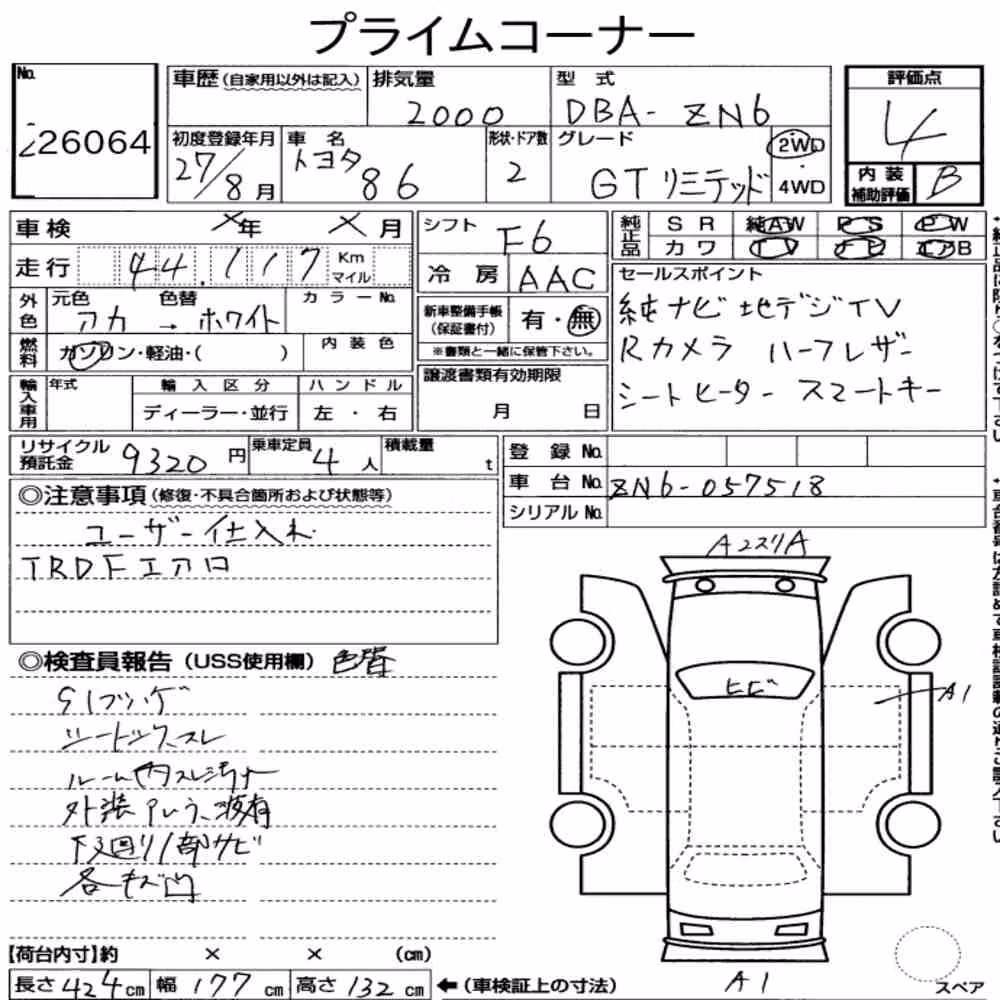 プライムコーナー
No.
26064
車歴 (自家用以外は記入)
排気量
2000
型式
DBA- ZN6
評価点
4
初度登録年月
27/8月
車名
トヨタ 86
形状・ドア数
2
グレード
GT リミテッド
2WD
・
4WD
内装
補助評価
B
車検 ×年 ×月
走行 44.117 Km マイル
シフト F6
冷房 AAC
純正品 SR 純AW PS PW
カワ TV ナビ エアB
外色 元色 色替 カラーNo.
アカ → ホワイト
新車整備手帳
(保証書付)
有・無
※書類と一緒に保管下さい。
燃料 ガソリン・軽油・( )
内装色
セールスポイント
純ナビ 地デジTV
Rカメラ ハーフレザー
シートヒーター スマートキー
輸入車用 年式 輸入区分 ハンドル
ディーラー・並行 左・右
譲渡書類有効期限
月 日
リサイクル
預託金 9320円
乗車定員 4人
積載量 t
登録No.
車台No. ZN6-057518
シリアルNo.
◎注意事項 (修復・不具合箇所および状態等)
ユーザー仕入れ
TRD Fエアロ
◎検査員報告 (USS使用欄) 色替
シートスレ
外装 波有
下廻り1部サビ
各キズ凹
A
ヒビ
A1
A1
スペア
【荷台内寸】約 × × (cm)
長さ424cm 幅177cm 高さ132cm ←(車検証上の寸法)